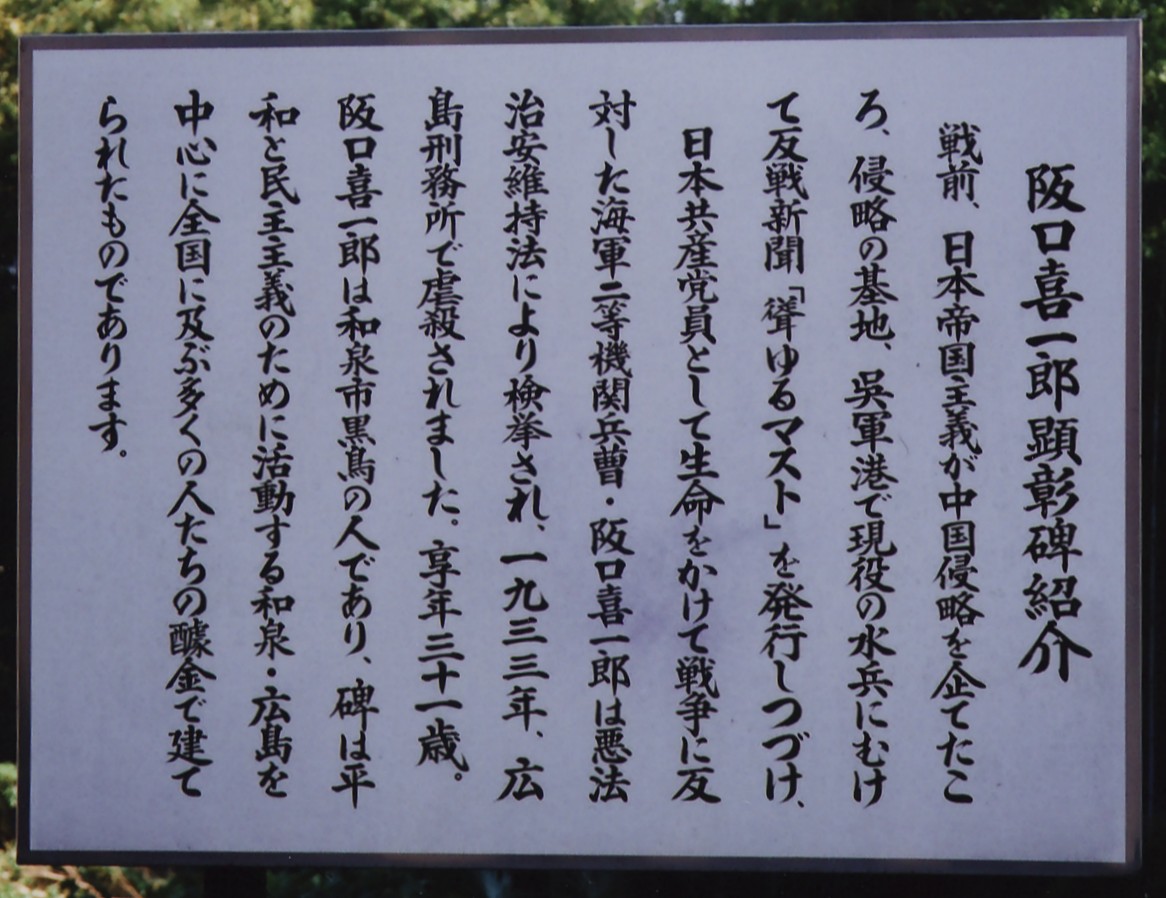 阪口喜一郎顕彰碑紹介
戦前、日本帝国主義が中国侵略を企てたこ
ろ、侵略の基地、呉軍港で現役の水兵にむけ
て反戦新聞「聳ゆるマスト」を発行しつづけ、
日本共産党員として生命をかけて戦争に反
対した海軍二等機関兵曹・阪口喜一郎は悪法
治安維持法により検挙され、一九三三年、広
島刑務所で虐殺されました。享年三十一歳。
阪口喜一郎は和泉市黒鳥の人であり、碑は平
和と民主主義のために活動する和泉・広島を
中心に全国に及ぶ多くの人たちの醵金で建て
られたものであります。